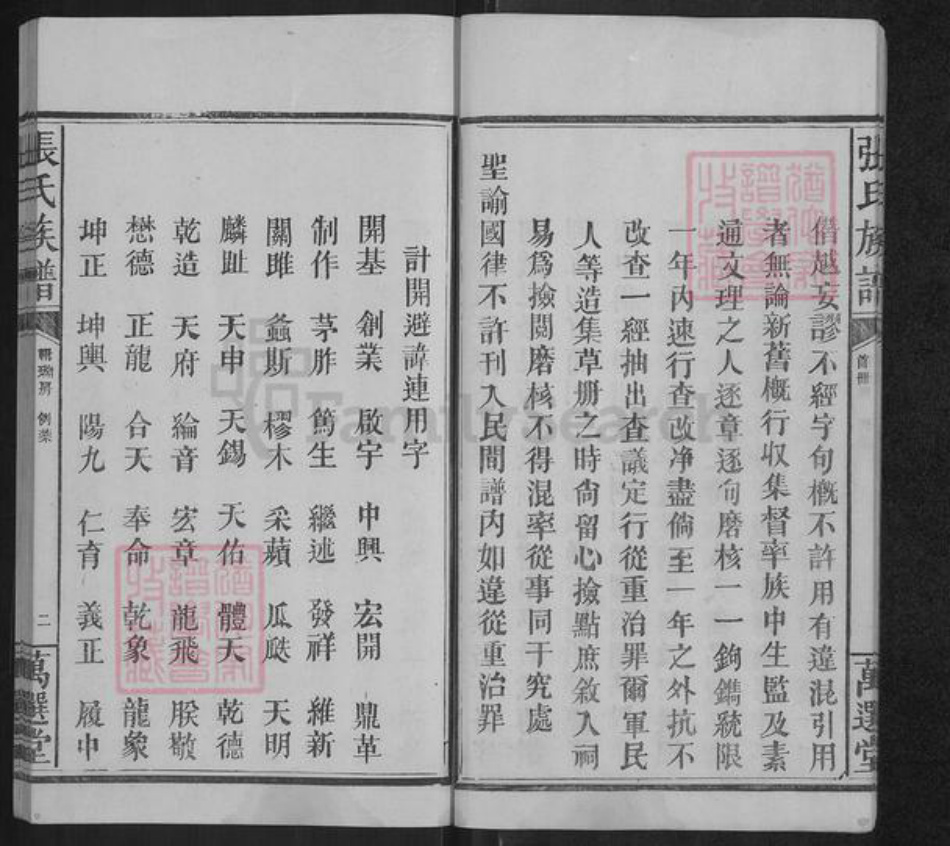 張氏族譜
首冊
萬選堂
僭越妄謬不經字句概不許用有違混引用
者無論新舊概行收集督率族中生監及素
通文理之人逐章逐句磨核一一鉤鐫統限
一年內速行查改净盡倘至一年之外抗不
改查一經抽出查議定行從重治罪爾軍民
人等造集草册之時尙留心撿點庶敘入祠
易爲撿閱磨核不得混率從事同干究處
聖諭國律不許刊入民間譜内如違從重治罪
計開避諱連用字
開基 創業 啟宇 中興 宏開 鼎革
制作 茅胙 篤生 繼述 發祥 維新
關雎 螽斯 樛木 采蘋 瓜瓞 天明
麟趾 天申 天錫 天佑 體天 乾德
乾造 天府 綸音 宏章 龍飛 朕敬
懋德 正龍 合天 奉命 乾象 龍象
坤正 坤輿 陽九 仁育 義正 履中
張氏族譜
房 例禁
二
萬選堂
FamilySearch